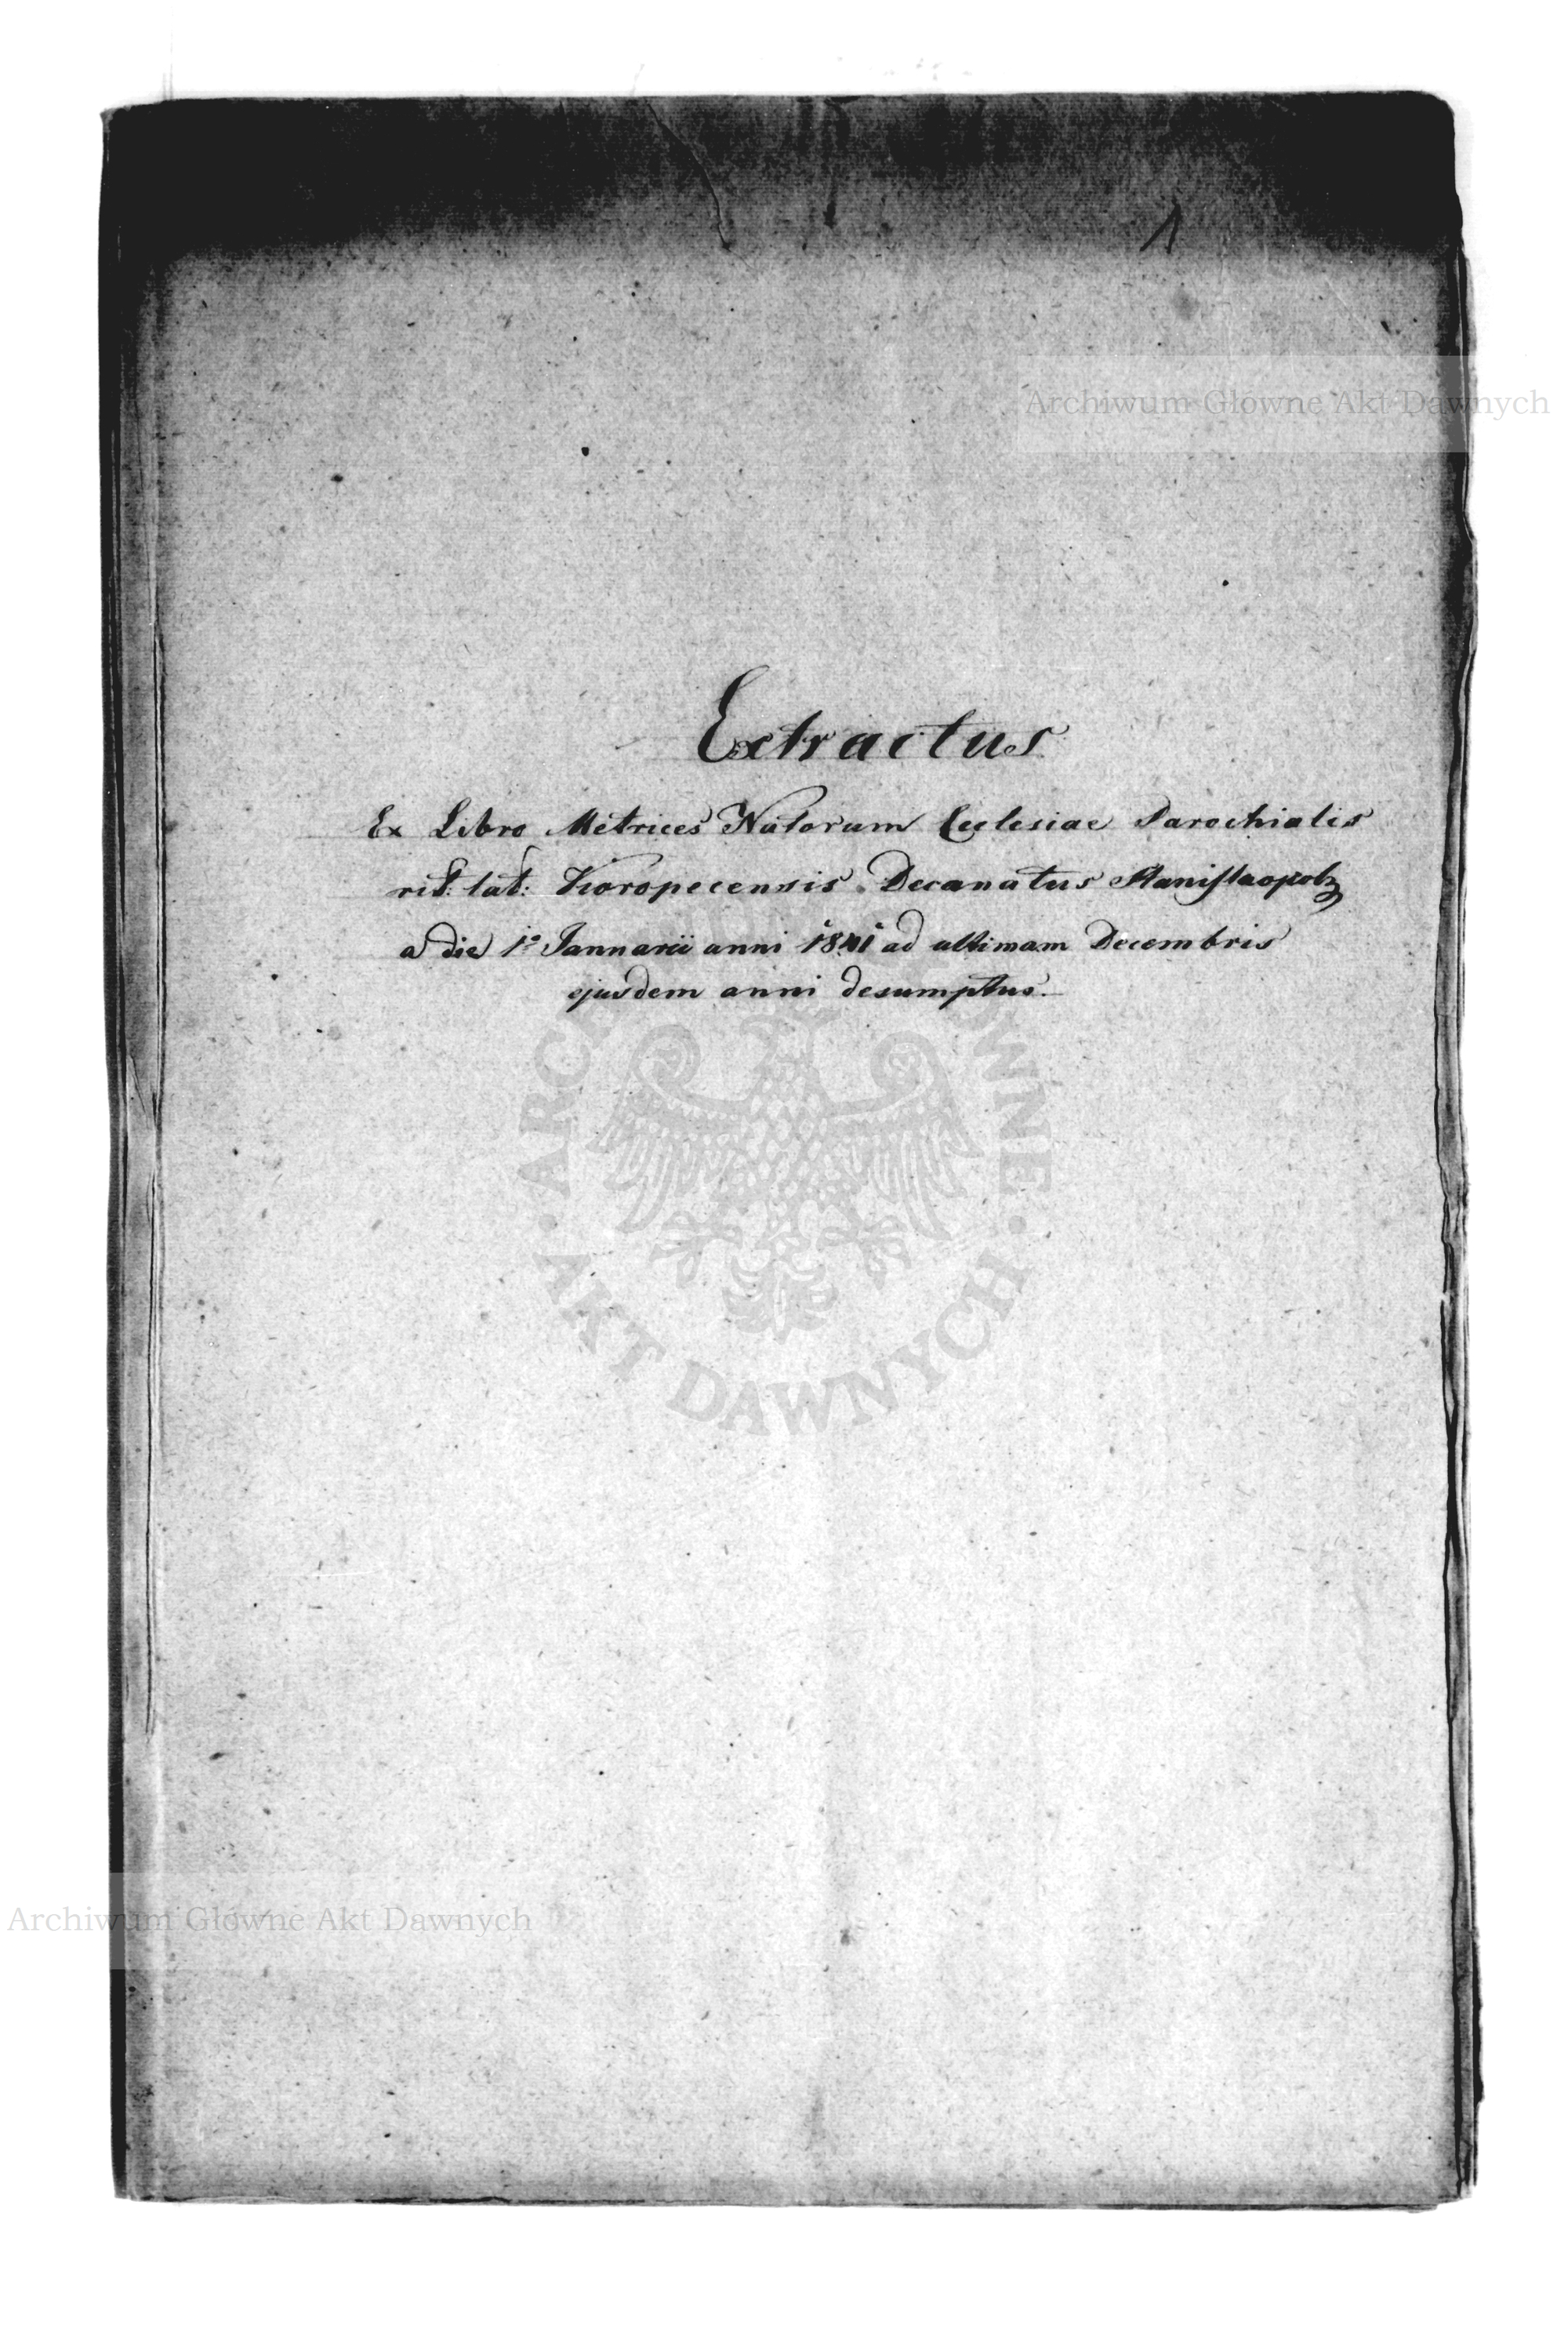 1
Archiwum Główne Akt Dawnych
Extractus
Ex Libro Metrices Natorum Ecclesiae Parochialis
rit: lat: Koropecensis Decanatus Stanislaopol:
a die 1ᵃ Januarii anni 1841 ad ultimam Decembris
ejusdem anni desumptus.—
ARCH WNE
AKT DAWNYCH
Archiwum Główne Akt Dawnych